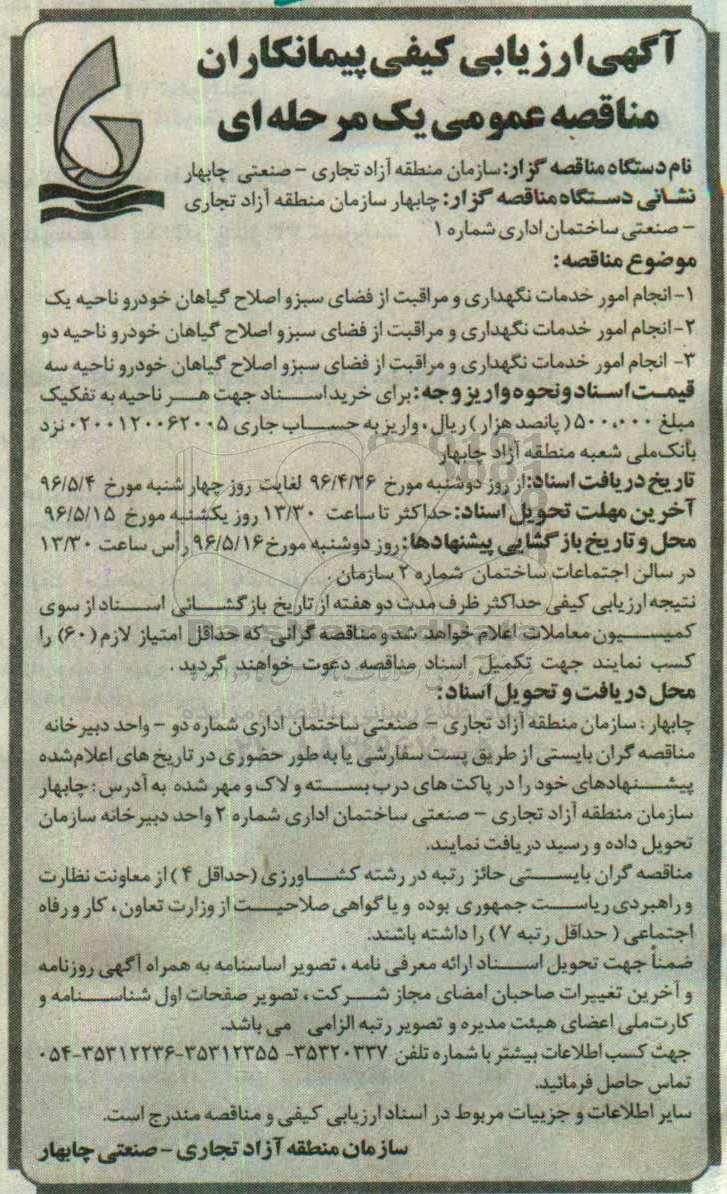 آگهی ارزیابی کیفی پیمانکاران
مناقصه عمومی یک مرحله ای
نام دستگاه مناقصه گزار: سازمان منطقه آزاد تجاری - صنعتی چابهار
نشانی دستگاه مناقصه گزار: چابهار سازمان منطقه آزاد تجاری
- صنعتی ساختمان اداری شماره ۱
موضوع مناقصه:
۱- انجام امور خدمات نگهداری و مراقبت از فضای سبز و اصلاح گیاهان خودرو ناحیه یک
۲- انجام امور خدمات نگهداری و مراقبت از فضای سبز و اصلاح گیاهان خودرو ناحیه دو
۳- انجام امور خدمات نگهداری و مراقبت از فضای سبز و اصلاح گیاهان خودرو ناحیه سه
قیمت اسناد و نحوه واریز وجه: برای خرید اسناد جهت هر ناحیه به تفکیک
مبلغ ۵۰۰,۰۰۰ (پانصد هزار) ریال، واریز به حساب جاری ۰۲۰۰۱۲۰۰۶۲۰۰۵ نزد
بانک ملی شعبه منطقه آزاد چابهار
تاریخ دریافت اسناد: از روز دوشنبه مورخ ۹۶/۴/۲۶ لغایت روز چهار شنبه مورخ ۹۶/۵/۴
آخرین مهلت تحویل اسناد: حداکثر تا ساعت ۱۳/۳۰ روز یکشنبه مورخ ۹۶/۵/۱۵
محل و تاریخ بازگشایی پیشنهادها: روز دوشنبه مورخ ۹۶/۵/۱۶ رأس ساعت ۱۳/۳۰
در سالن اجتماعات ساختمان شماره ۲ سازمان.
نتیجه ارزیابی کیفی حداکثر ظرف مدت دو هفته از تاریخ بازگشائی اسناد از سوی
کمیسیون معاملات اعلام خواهد شد و مناقصه گرانی که حداقل امتیاز لازم (۶۰) را
کسب نمایند جهت تکمیل اسناد مناقصه دعوت خواهند گردید.
محل دریافت و تحویل اسناد:
چابهار: سازمان منطقه آزاد تجاری - صنعتی ساختمان اداری شماره دو - واحد دبیرخانه
مناقصه گران بایستی از طریق پست سفارشی یا به طور حضوری در تاریخ های اعلام شده
پیشنهادهای خود را در پاکت های درب بسته و لاک و مهر شده به آدرس: چابهار
سازمان منطقه آزاد تجاری - صنعتی ساختمان اداری شماره ۲ واحد دبیرخانه سازمان
تحویل داده و رسید دریافت نمایند.
مناقصه گران بایستی حائز رتبه در رشته کشاورزی (حداقل ۴) از معاونت نظارت
و راهبردی ریاست جمهوری بوده و یا گواهی صلاحیت از وزارت تعاون، کار و رفاه
اجتماعی (حداقل رتبه ۷) را داشته باشند.
ضمناً جهت تحویل اسناد ارائه معرفی نامه، تصویر اساسنامه به همراه آگهی روزنامه
و آخرین تغییرات صاحبان امضای مجاز شرکت، تصویر صفحات اول شناسنامه و
کارت ملی اعضای هیئت مدیره و تصویر رتبه الزامی می باشد.
جهت کسب اطلاعات بیشتر با شماره تلفن ۳۵۳۲۰۳۳۷- ۳۵۳۱۲۳۵۵-۳۵۳۱۲۲۳۶-۰۵۴
تماس حاصل فرمائید.
سایر اطلاعات و جزییات مربوط در اسناد ارزیابی کیفی و مناقصه مندرج است.
سازمان منطقه آزاد تجاری - صنعتی چابهار